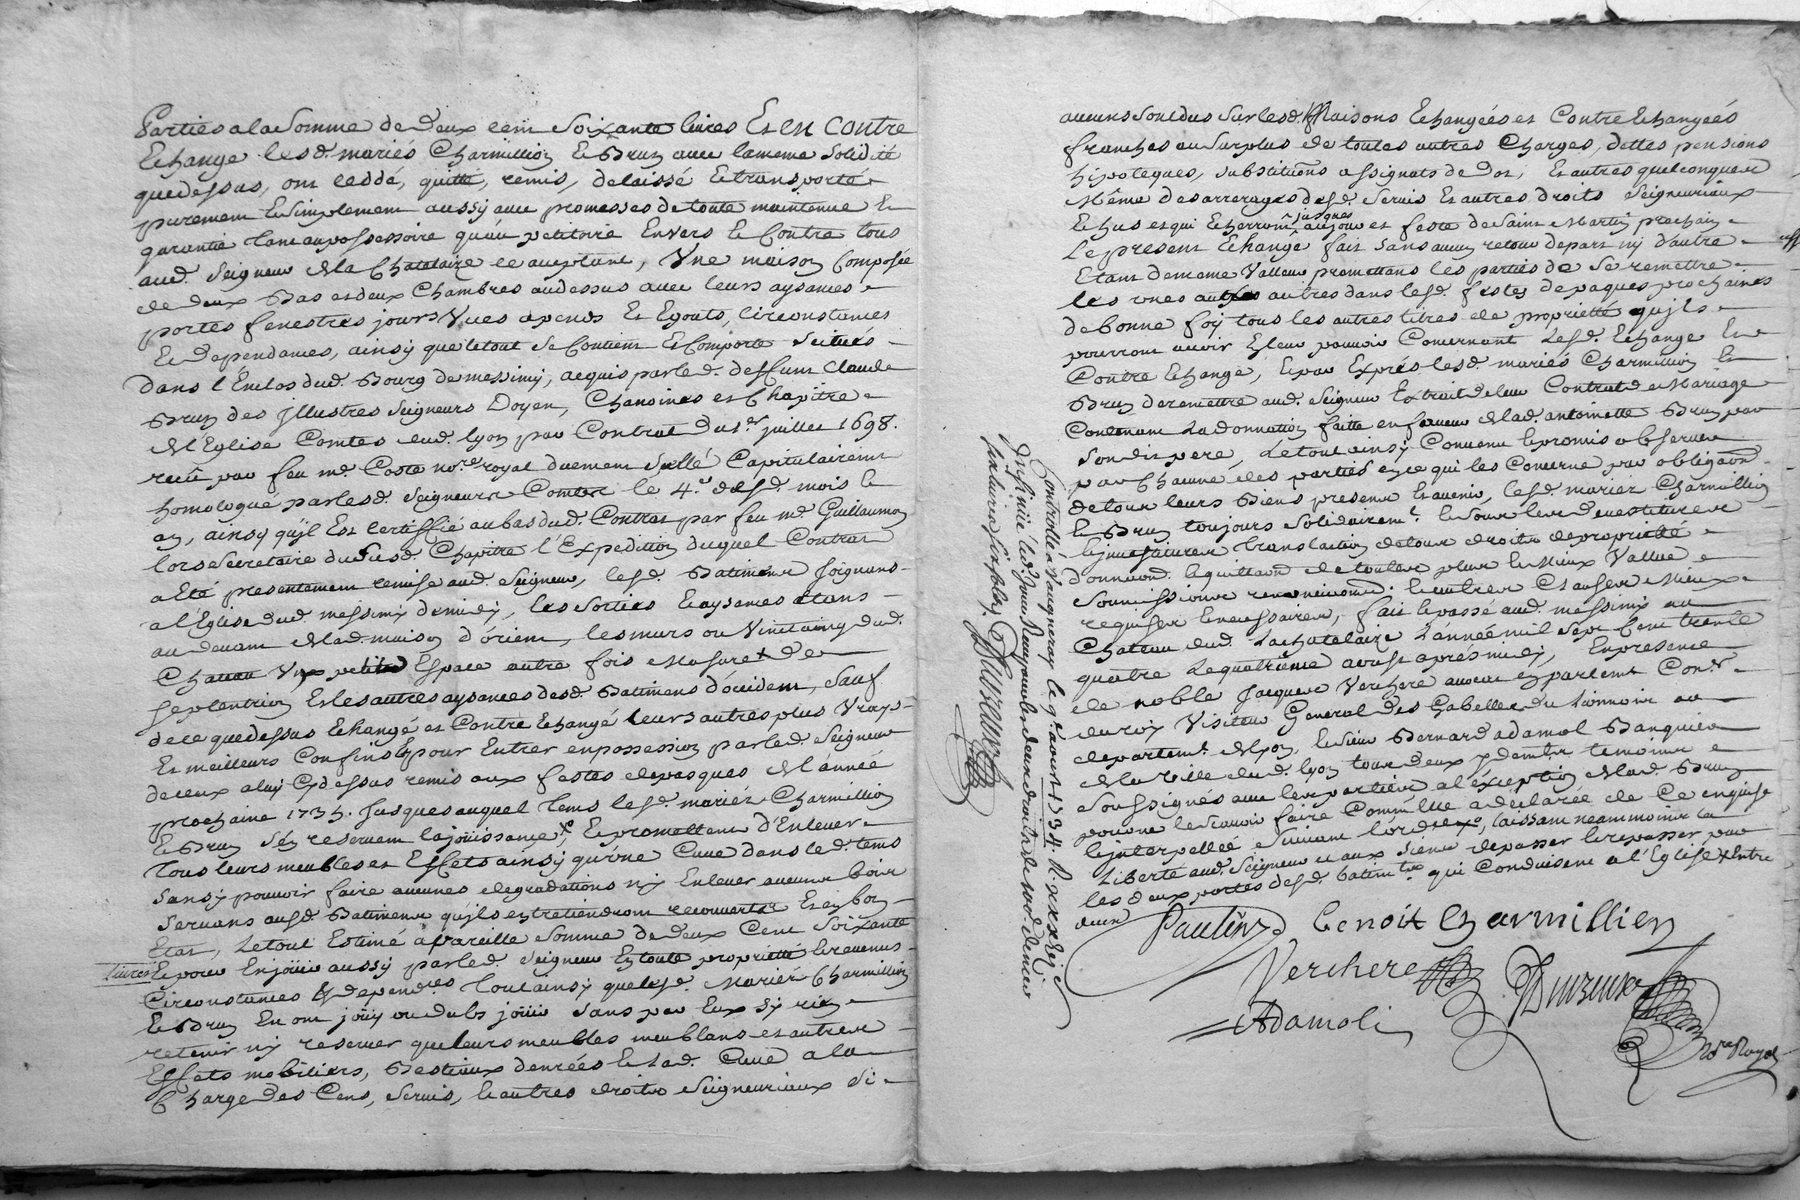 Parties a la Somme de Deux cent Soixante livres Et en contre
Echange lesd. mariés Charmillion et Brun avec la meme Solidité
que dessus, ont ceddé, quitté, remis, delaissé et transporté
purement et simplement aussy avec promesses de toute maintenue et
garantie tant au possessoire qu'au petitoire Envers et Contre tous
aud. Seigneur de la Chatelaire ce acceptant, Une maison Composée
de deux Bas et deux Chambres au dessus avec leurs aysances
portes fenestres jours Vues apends Et Egouts, Circonstances
Et Dependances, ainsy que le tout se Contient et Comporte scitués
dans l'Enclos dud. Bourg de messimy, acquis par led. deffunt Claude
Brun des Illustres Seigneurs Doyen, Chanoines et Chapitre
de l'Eglise Comtes dud. Lyon par Contrat du 1er juillet 1698.
receu par feu me. Coste nore. royal duement scellé Capitulairement
homologué par lesd. Seigneurs Comtes le 4e. desd. mois et
an, ainsy qu'il Est certiffié au bas dud. Contrat par feu me Guillaumon
lors secretaire du susd. Chapitre l'Expedition duquel Contrat
a Eté presentement remise aud. Seigneur, lesd. Batimens joignans
a l'Eglise dud. messimy de midy, les sorties et aysances etans
au devant de lad. maison d'orient, les murs ou Vintaing dud.
Chateau Un petit Espace autre fois Masure de
septentrion Et les autres aysances desd. Batimens d'occident, Sauf
de ce que dessus Echangé et Contre Echangé leurs autres plus Vrays
Et meilleurs Confins pour Entrer en possession par led. Seigneur
de ceux a luy Cy dessus remis aux festes de pasques de l'année
prochaine 1735. Jusques auquel tems lesd. mariés Charmillion
Et Brun s'en reservent la joüissance, Et promettent d'Enlever
tous leurs meubles et Effets ainsy qu'une Cuve dans led. tems
sans y pouvoir faire aucunes degradations ny Enlever aucuns bois
servans ausd. Batimens qu'ils entretiendront recouverts Et en bon
Etat, Le tout Estimé a pareille somme de deux Cent soixante
livres Et pour En joüir aussy par led. Seigneur En toute proprieté et revenus
Circonstances & dependces tout ainsy que lesd. Mariés Charmillion
Et Brun En ont joüy ou dubs joüir sans par Eux s'y rien
retenir ny reserver que leurs meubles meublans et autres
Effets mobiliers, Bestiaux denrées Et lad. Cuve a la
Charge des Cens, servis, et autres droits seigneuriaux si
aucuns sont dus sur lesd. Maisons Echangées et Contre Echangées
franches au surplus de toutes autres Charges, dettes pensions
hipoteques, substitutions assignats de dot, Et autres quelconques
Même des arrerages desd. servis Et autres droits seigneuriaux
Echus et qui Echerront jusques au jour et feste de Saint Martin prochain
Le present Echange fait sans aucun retour de part ny d'autre
Etant de meme Valleur promettans les parties de se remettre
les unes aux autres dans lesd. festes de paques prochaines
de bonne foy tous les autres titres de proprietté qu'ils
pourront avoir En leur pouvoir Concernant lesd. Echange Et
Contre Echange, Et par Exprés lesd. mariés Charmillion Et
Brun de remettre aud. Seigneur Extrait de leur Contrat de Mariage
Contenant La donnation faite en faveur de lad. antoinette Brun par
son dit pere, Le tout ainsy Convenu et promis observer
par Chacune des parties en ce qui les Concerne par obligaon.
de tous leurs Biens presens Et avenir, lesd. mariés Charmillion
Et Brun toujours solidairemt. et sous leur devestitures
et investitures translation de tous droits de proprieté
donnaon. et quittaon. de toutes plus et mieux Vallue
soumissions renonciaons. et autres Clauses mieux
requises et necessaires, fait et passé aud. messimy au
Chateau dud. La Chatelaire L'année mil sept Cent trente
quatre Le quatrième aoust aprés midy, En presence
de noble Jacques Verchere avocat en parlemt. Conr.
du roy Visiteur General des Gabelles du Lionnois au
departemt. de Lyon, et sieur Bernard adamol Banquier
de la Ville dud. Lyon tous deux y demts. temoins
soussignés avec les parties a l'exception de lad. Brun
pour ne le sçavoir faire Comme elle a declarée de Ce enquise
et interpellée suivant l'ordce., laissant neammoins la
Liberté aud. Seigneur et aux siens de passer et repasser par
les deux portes desd. batimts. qui Conduisent a l'Eglise & Entre
deux
Paulin Benoit Charmillion
Verchere Duvernay
Adamoli
Nore. Royal
Controllé a Vaugneray le 9e. aoust 1734.